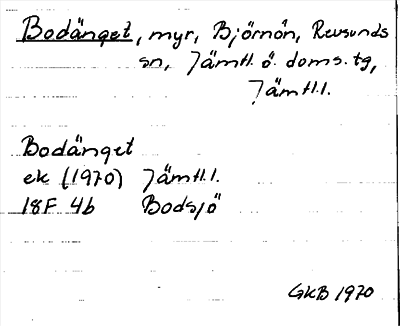 Bodänget, myr, Björnön, Revsunds
sn, Jämtl. ö. doms. tg,
Jämtl.l.
Bodänget
ek (1970) Jämtl.l.
18F 4b Bodsjö
GKB 1970